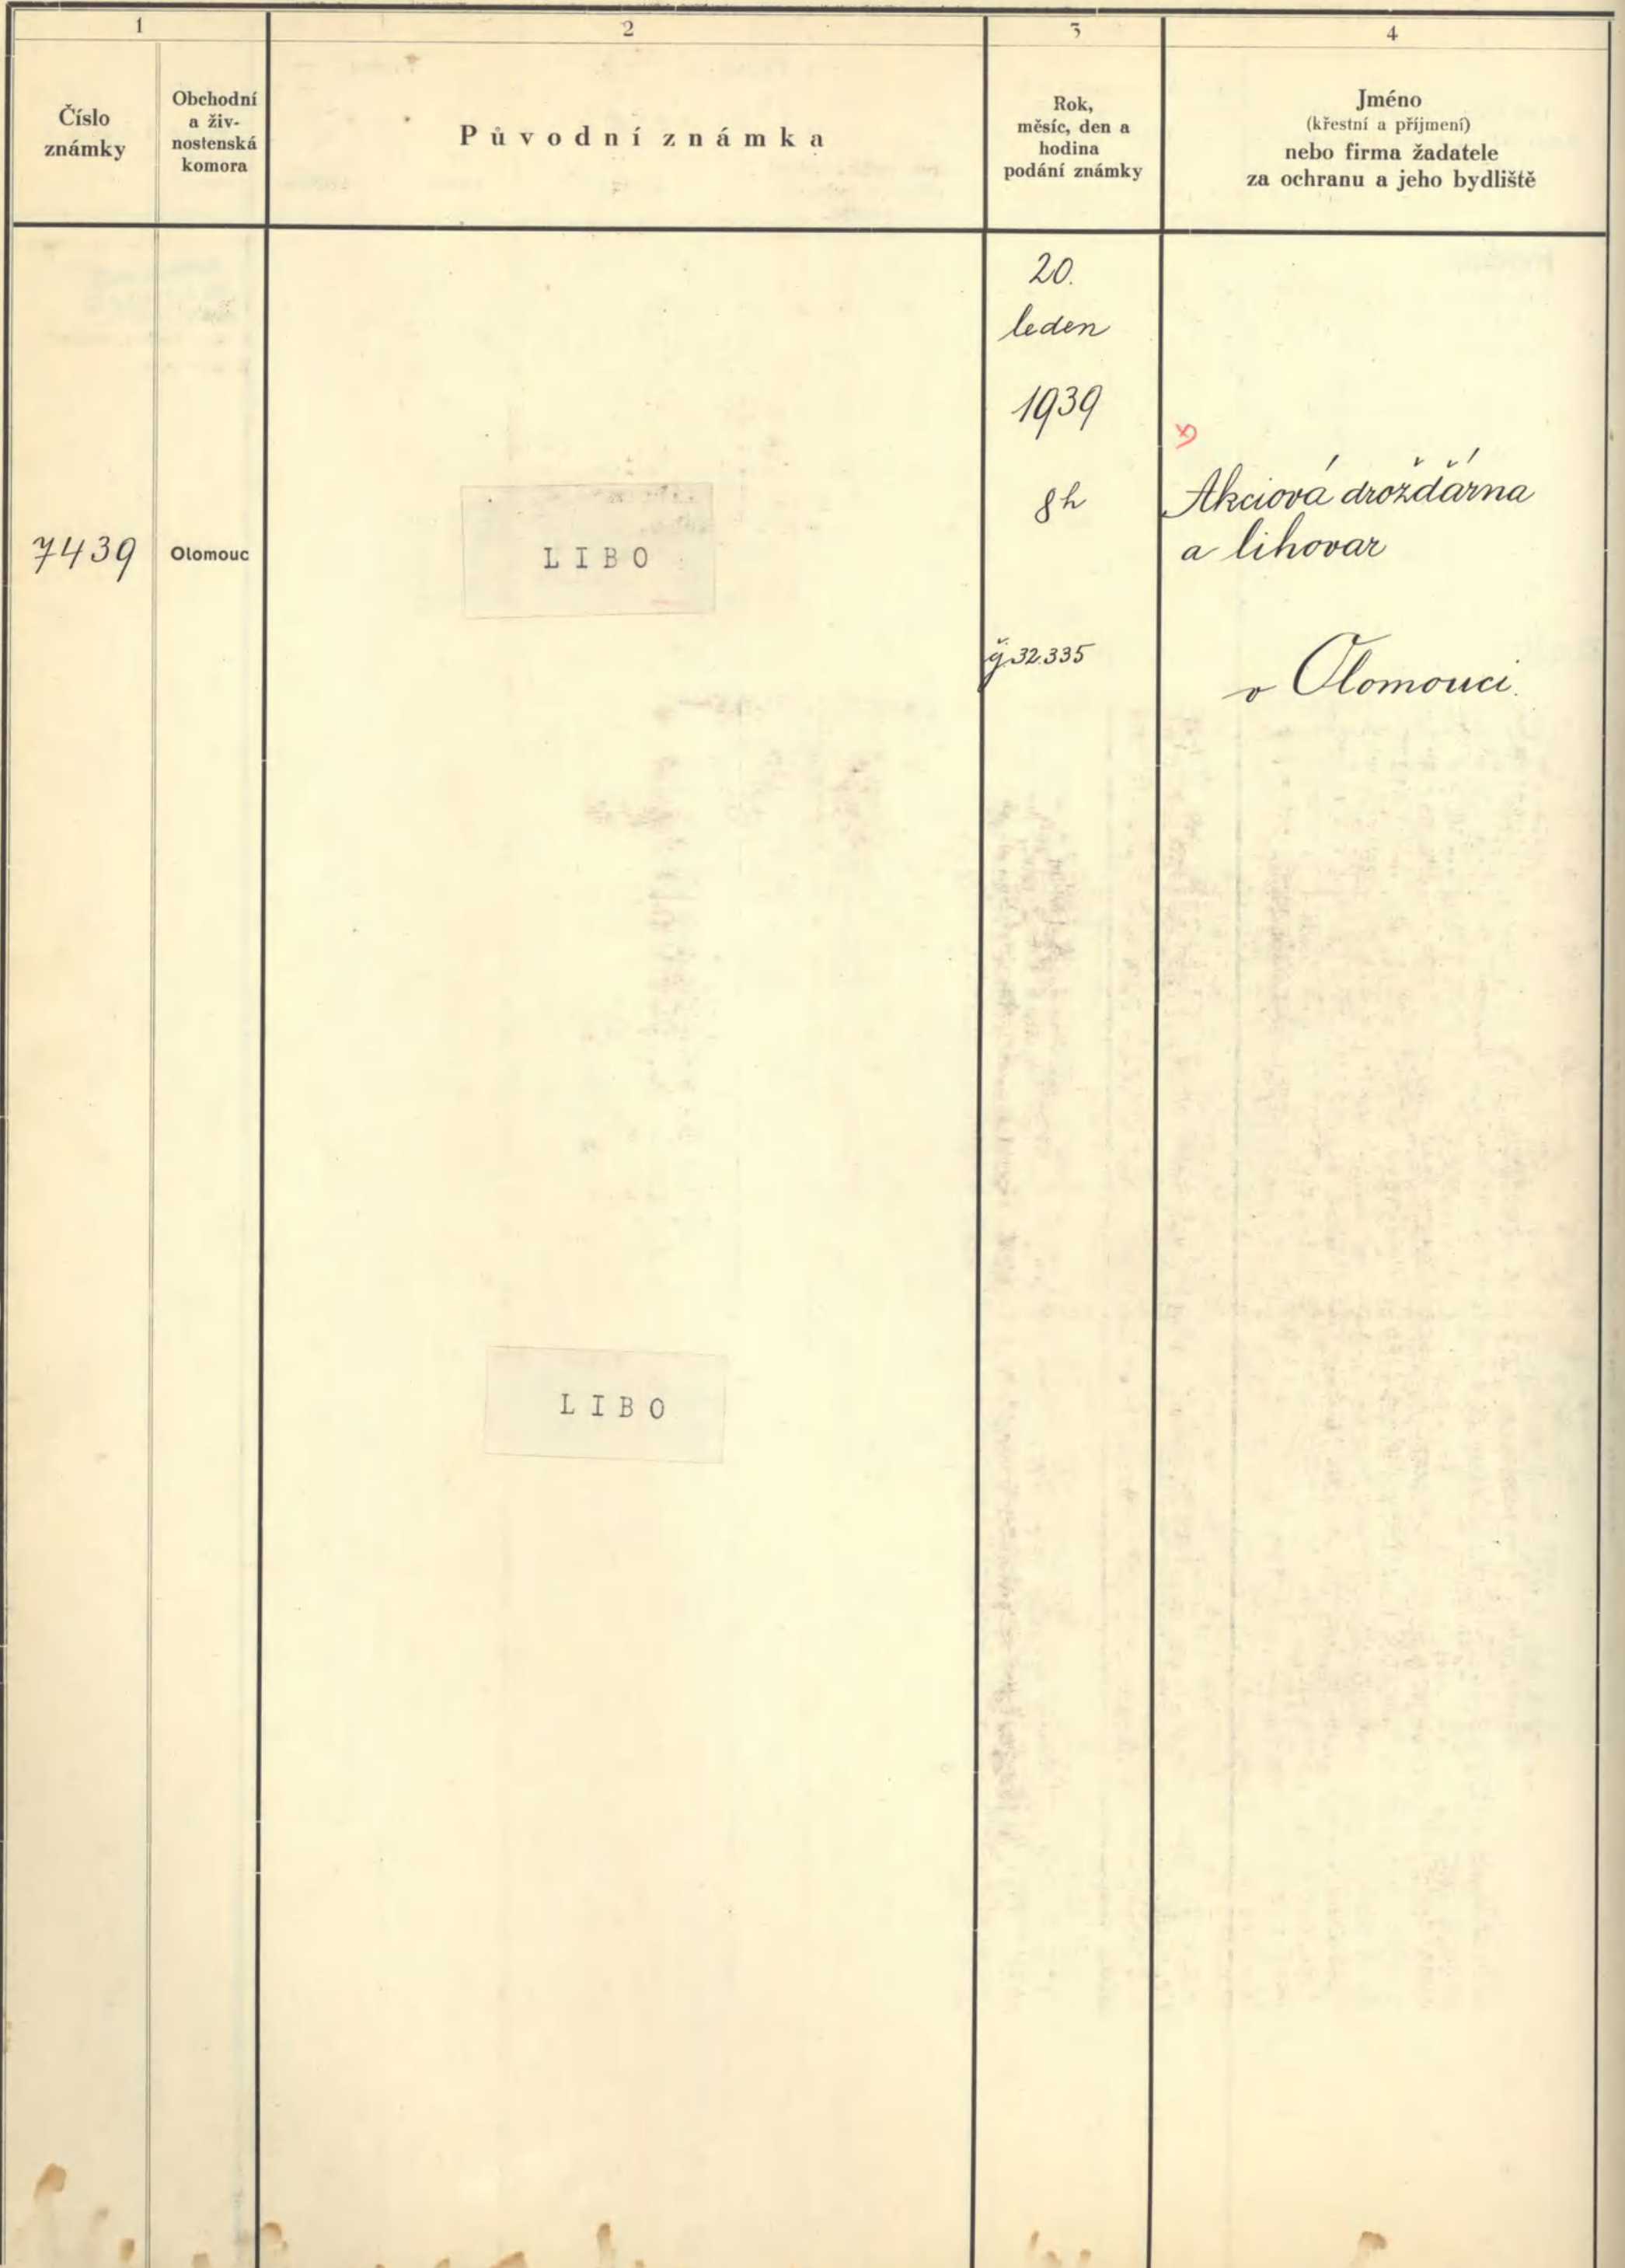 1
2
3
4
Číslo
známky
Obchodní
a živ-
nostenská
komora
Původní známka
Rok,
měsíc, den a
hodina
podání známky
Jméno
(křestní a příjmení)
nebo firma žadatele
za ochranu a jeho bydliště
7439
Olomouc
LIBO
20.
leden
1939
8h
čj.32.335
Akciová drožďárna
a lihovar
v Olomouci.
LIBO